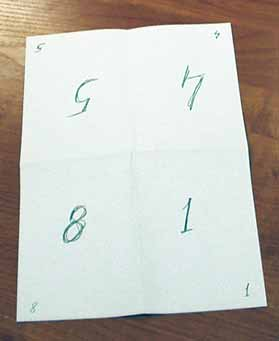 5 4
5 4
8 1
8 1